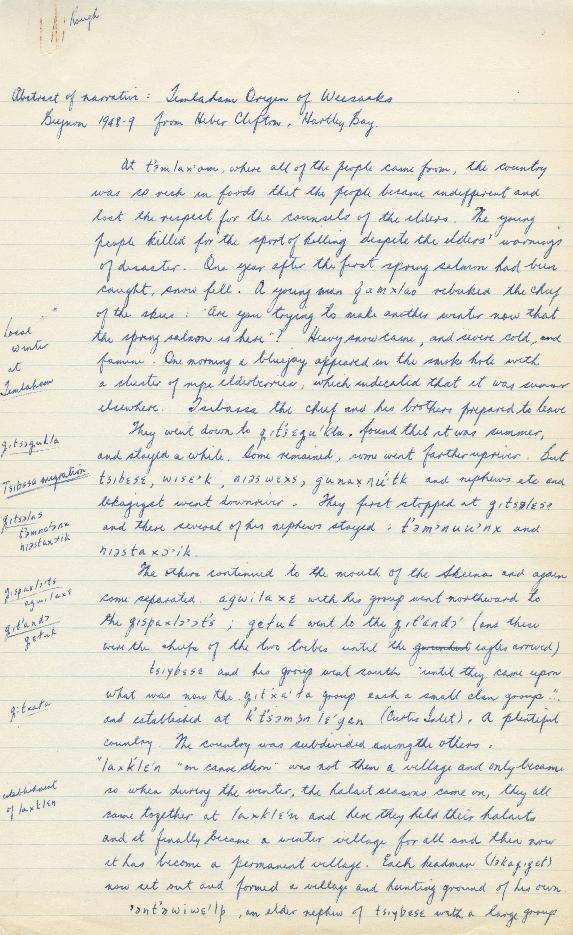 Rough
Abstract of narrative: Temlaham Origen of Weesaaks
Beynon 1948-9 from Heber Clifton, Hartley Bay.
At t'əmlax'am, where all of the people came from, the country
was so rich in foods that the people became indifferent and
lost the respect for the counsels of the elders. The young
people killed for the sport of killing despite the elders' warnings
of disaster. One year after the first spring salmon had been
caught, snow fell. A young man rebuked the chief
of the skies: "Are you trying to make another winter now that
the spring salmon is here"? Heavy snow came, and severe cold, and
famine. One morning a bluejay appeared in the smoke hole with
a cluster of ripe elderberries, which indicated that it was summer
elsewhere. Tsibassa the chief and his brothers prepared to leave
"local"
winter
at
Temlaham
They went down to gɩts'ɛgu'kla, found that it was summer,
and stayed a while. Some remained, some went farther upriver. But
tsibɛsɛ, wɩsɛ'k, nɩəswɛxs, gunaxnú'tk and nephews etc and
lɛkagɩgɛt went downriver. They first stopped at gɩtsəlɛsɛ
and there several of his nephews stayed: t'əmənuu'nx and
nɩəstaxə'ɩk.
gɩtsɩgukla
Tsibɛsa migration
gɩtsəlas
nɩəstaxtɩk
The others continued to the mouth of the Skeena and again
some separated. agwɩlaxɛ with his group went northward to
the gɩspaxlə'əts; gɛtuk went to the gɩtlandə' (and these
were the chiefs of the two tribes until the eagles arrived)
gɩspaxləts
agwɩlaxɛ
gɩtlandə
gɛtuk
tsɩybɛsɛ and his group went south "until they came upon
what was now the gɩt'xa'ła group each a small clan group"..
and established at k'tsəmən lɛ'gən (Curtis Inlet). A plentiful
country. The country was subdivided among the others.
gɩtxata
"laxklɛ'n "on canoe stern" was not then a village and only became
so when during the winter, the halait seasons came on, they all
came together at laxklɛ'n and here they held their halaits
and it finally became a winter village for all and then now
it has become a permanent village. Each headman (ləkagɩgɛt)
now set out and formed a village and hunting ground of his own.
establishment
of laxklɛn
'ənt'əwɩwɛ'lp, an elder nephew of tsɩybɛsɛ with a large group